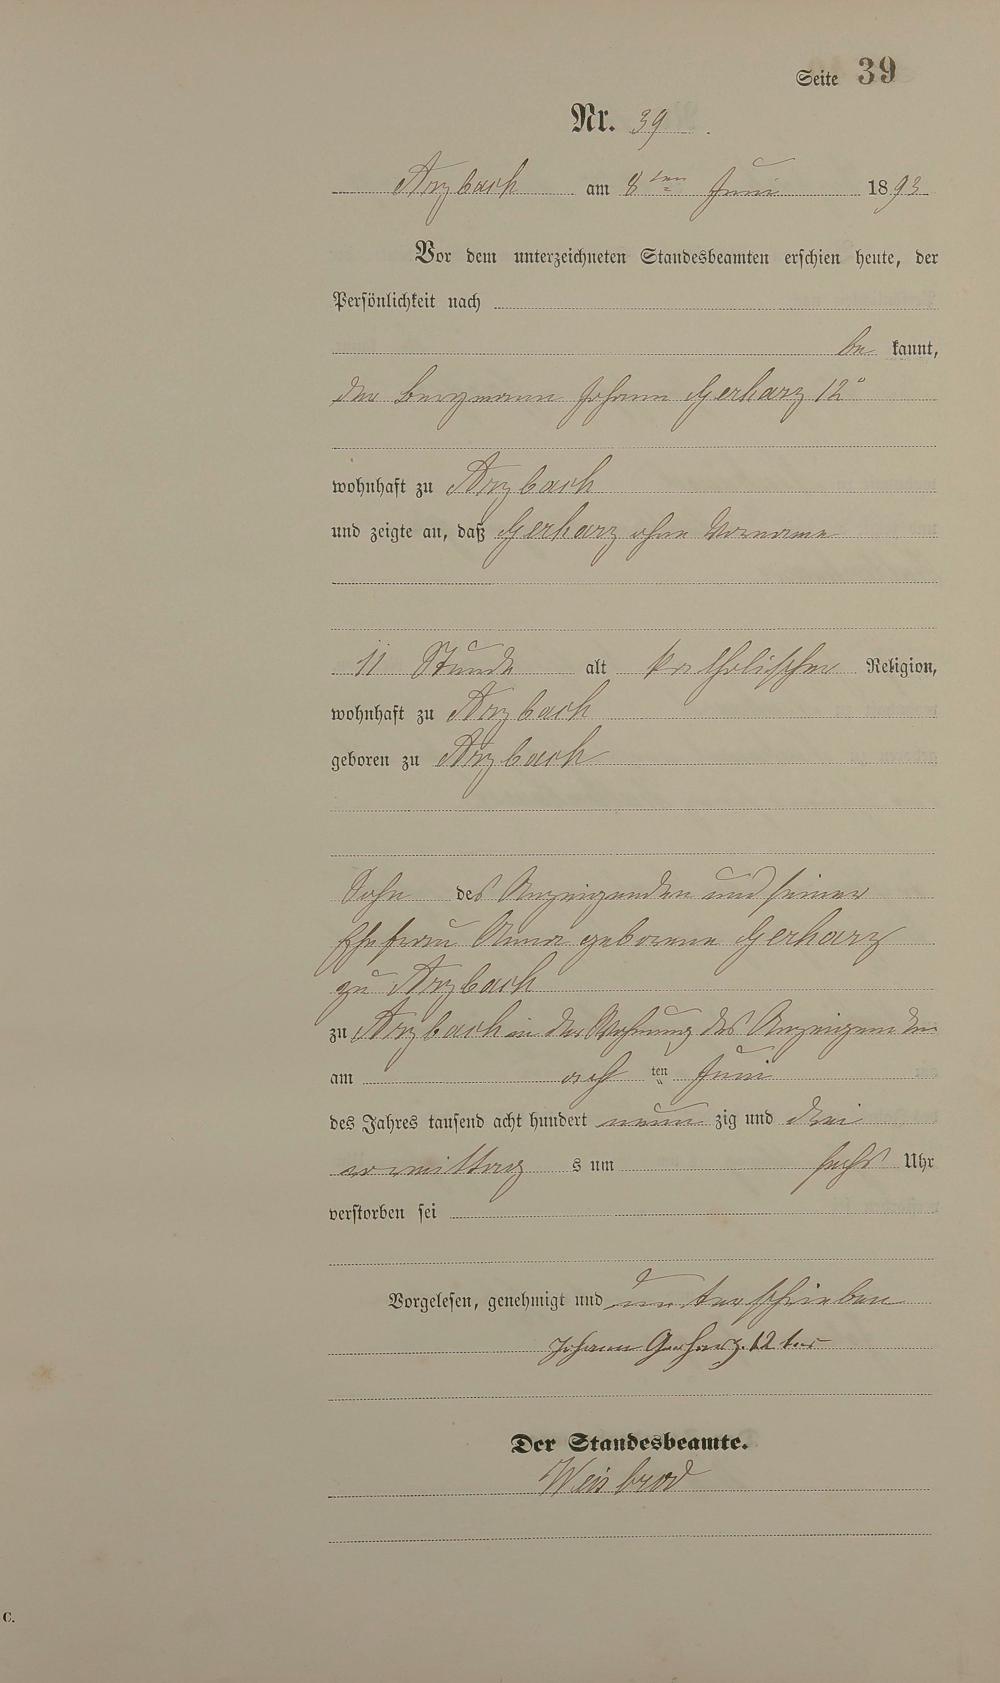 Seite 39
Nr. 39
Arzbach am 8ten Juni 1893
Vor dem unterzeichneten Standesbeamten erschien heute, der
Persönlichkeit nach
be kannt,
der Bergmann Johann Gerharz 12r
wohnhaft zu Arzbach
und zeigte an, daß Gerharz ohne Vorname
11 Stunde alt katholischer Religion,
wohnhaft zu Arzbach
geboren zu Arzbach
Sohn des Anzeigenden und seiner
Ehefrau Anna geborene Gerharz
zu Arzbach
zu Arzbach in der Wohnung des Anzeigenden
am acht ten Juni
des Jahres tausend acht hundert neun zig und drei
vormittag s um sechs Uhr
verstorben sei
Vorgelesen, genehmigt und unterschrieben
Johann Gerharz 12ter
Der Standesbeamte.
Weisbrod
C.